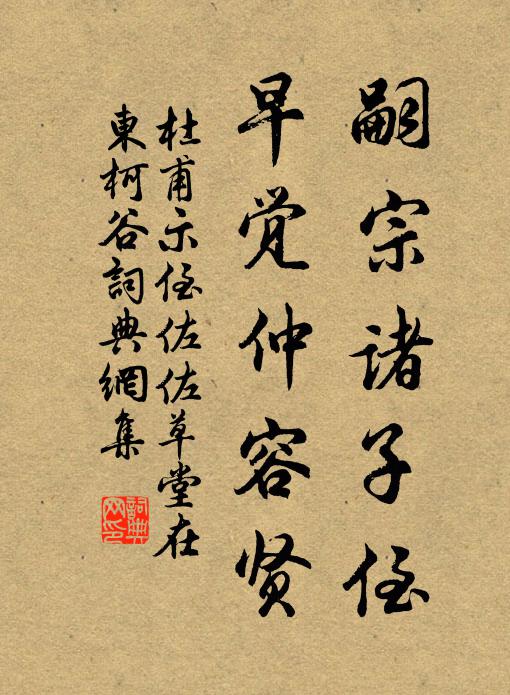 嗣宗诸子侄
早觉仲容贤
杜甫示侄佐佐草堂在
東柯谷詞典網集
詞典网印